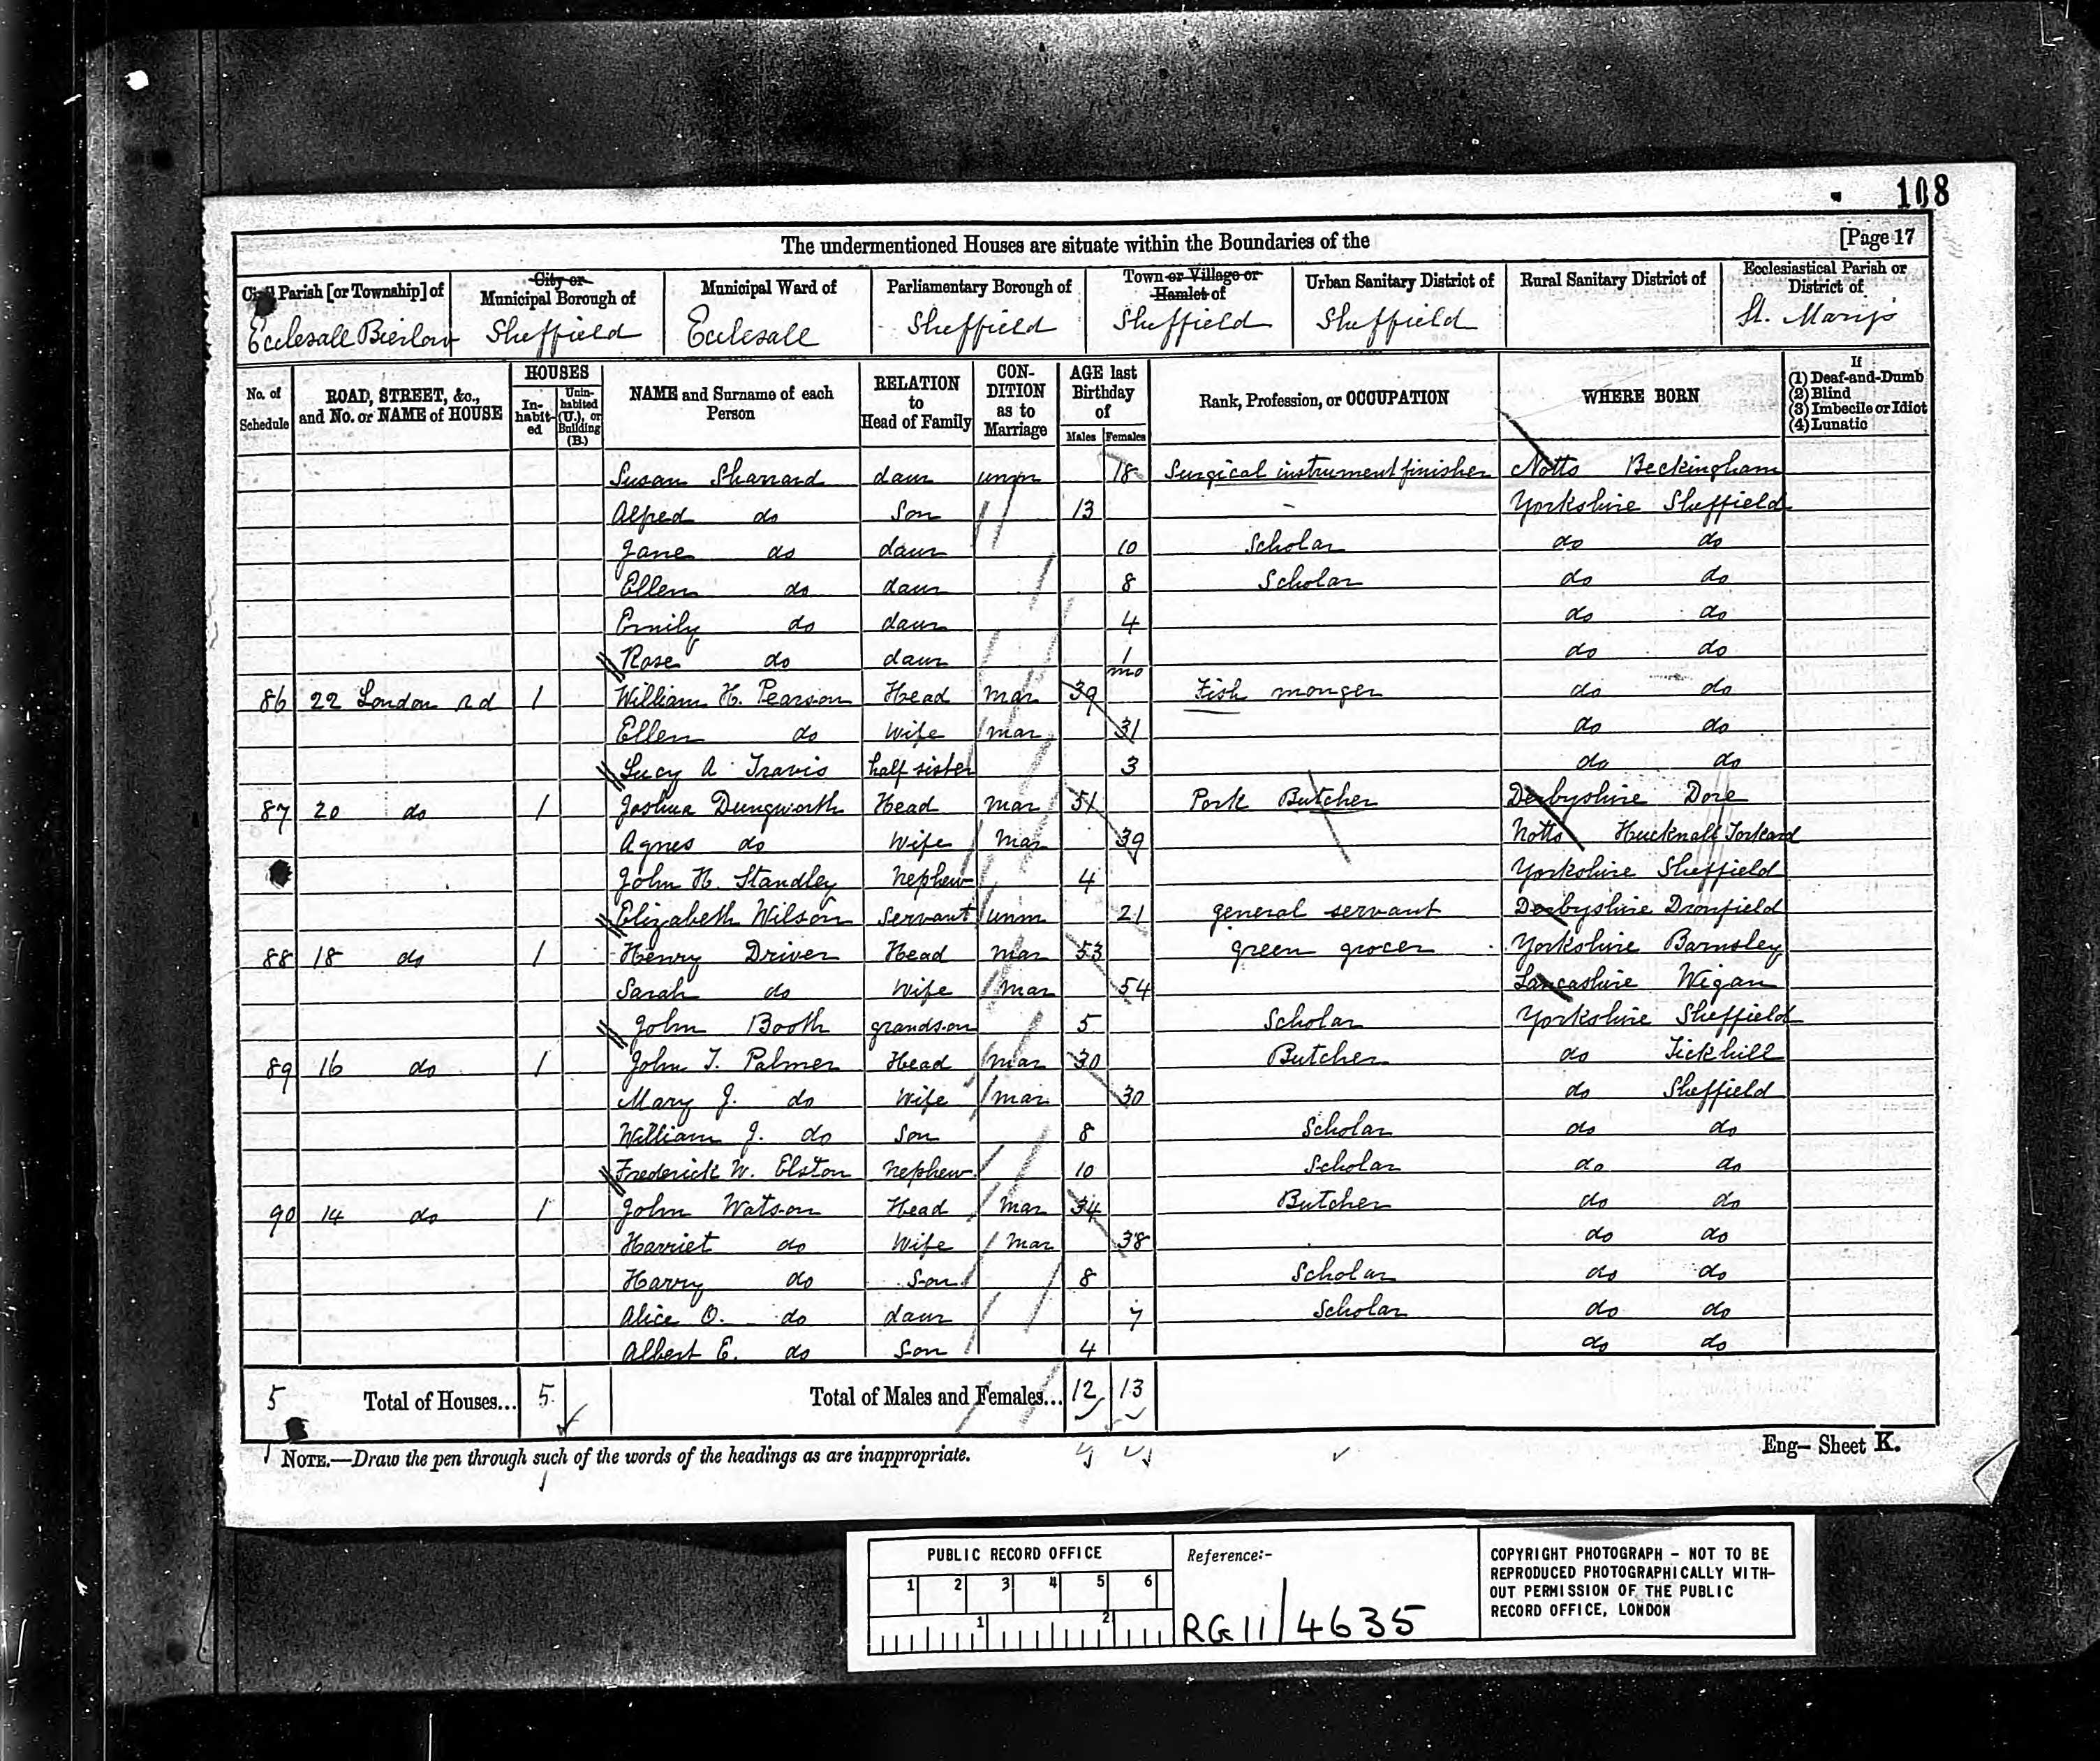 108
The undermentioned Houses are situate within the Boundaries of the [Page 17
Civil Parish [or Township] of Ecclesall Bierlow
City or Municipal Borough of Sheffield
Municipal Ward of Ecclesall
Parliamentary Borough of Sheffield
Town or Village or Hamlet of Sheffield
Urban Sanitary District of Sheffield
Rural Sanitary District of
Ecclesiastical Parish or District of St. Mary's
No. of Schedule
ROAD, STREET, &c., and No. or NAME of HOUSE
HOUSES
In-habit-ed
Unin-habited (U.), or Building (B.)
NAME and Surname of each Person
RELATION to Head of Family
CON-DITION as to Marriage
AGE last Birthday of
Males Females
Rank, Profession, or OCCUPATION
WHERE BORN
If
(1) Deaf-and-Dumb
(2) Blind
(3) Imbecile or Idiot
(4) Lunatic
Susan Sharrard daur unm 18 Surgical instrument finisher Notts Beckingham
Alfred do Son 13 - Yorkshire Sheffield
Jane do daur 10 Scholar do do
Ellen do daur 8 Scholar do do
Emily do daur 4 do do
Rose do daur 1 mo do do
86 22 London Rd 1 William H. Pearson Head mar 39 Fish monger do do
Ellen do Wife mar 31 do do
Lucy A Travis half sister 3 do do
87 20 do 1 Joshua Dungworth Head mar 51 Pork Butcher Derbyshire Dore
Agnes do Wife Mar 39 Notts Hucknall Torkard
John H. Standley Nephew 4 Yorkshire Sheffield
Elizabeth Wilson Servant unm 21 general servant Derbyshire Dronfield
88 18 do 1 Henry Driver Head mar 53 green grocer Yorkshire Barnsley
Sarah do Wife Mar 54 Lancashire Wigan
John Booth grandson 5 Scholar Yorkshire Sheffield
89 16 do 1 John T. Palmer Head mar 30 Butcher do Tickhill
Mary J. do Wife mar 30 do Sheffield
William J. do Son 8 Scholar do do
Frederick W. Elston Nephew 10 Scholar do do
90 14 do 1 John Watson Head Mar 34 Butcher do do
Harriet do Wife Mar 38 do do
Harry do Son 8 Scholar do do
Alice O. do daur 7 Scholar do do
Albert E. do Son 4 do do
5 Total of Houses... 5 Total of Males and Females... 12 13
NOTE.—Draw the pen through such of the words of the headings as are inappropriate.
Eng— Sheet K.
PUBLIC RECORD OFFICE
1 2 3 4 5 6
1 2
Reference:-
RG 11/4635
COPYRIGHT PHOTOGRAPH - NOT TO BE
REPRODUCED PHOTOGRAPHICALLY WITH-
OUT PERMISSION OF THE PUBLIC
RECORD OFFICE, LONDON